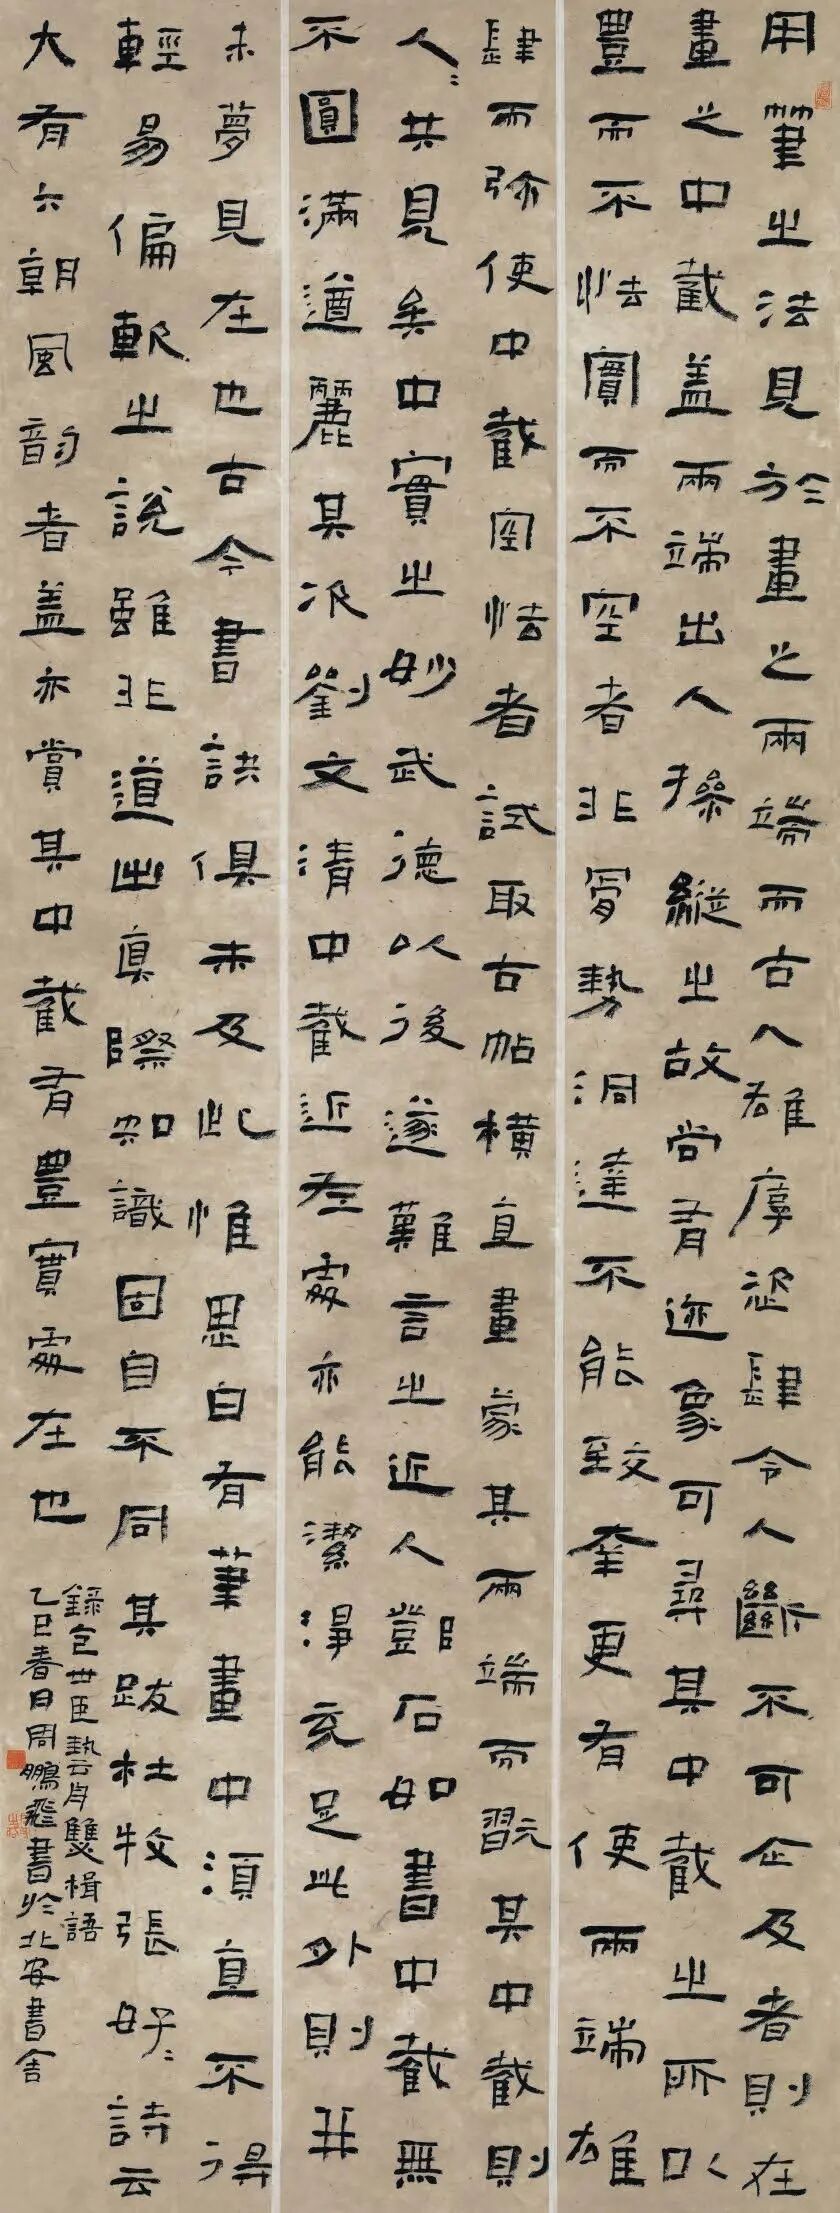 用筆之法見於畫之兩端而古人雄厚恣肆令人斷不可企及者則在
畫之中截盖兩端出入操縱之故尚有迹象可尋其中截之所以
豐而不怯實而不空者非骨勢洞達不能致幸更有使兩端雄
肆而弥使中截空怯者試取古帖橫直畫蒙其兩端而翫其中截則
人〻共見矣中實之妙武德以後遂難言之近人鄧石如書中截無
不圓滿遒麗其次劉文清中截近左處亦能潔淨充足此外則並
未夢見在也古今書訣俱未及此惟思白有筆畫中須直不得
輕易偏軟之說雖非道出真際知識固自不同其跋杜牧張好〻詩云
大有六朝風韵者盖亦賞其中截有豐實處在也
錄包世臣藝舟雙楫語
乙巳春日周鵬飛書於北安書舍